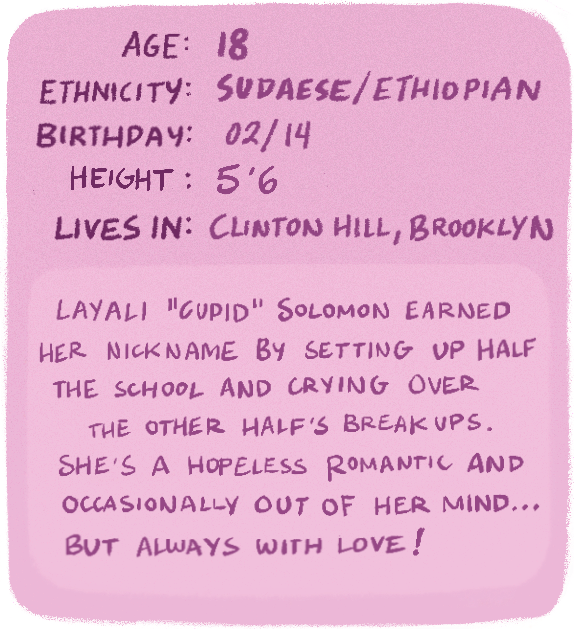 AGE: 18
ETHNICITY: SUDAESE/ETHIOPIAN
BIRTHDAY: 02/14
HEIGHT: 5'6
LIVES IN: CLINTON HILL, BROOKLYN
LAYALI "CUPID" SOLOMON EARNED
HER NICKNAME BY SETTING UP HALF
THE SCHOOL AND CRYING OVER
THE OTHER HALF'S BREAKUPS.
SHE'S A HOPELESS ROMANTIC AND
OCCASIONALLY OUT OF HER MIND...
BUT ALWAYS WITH LOVE!